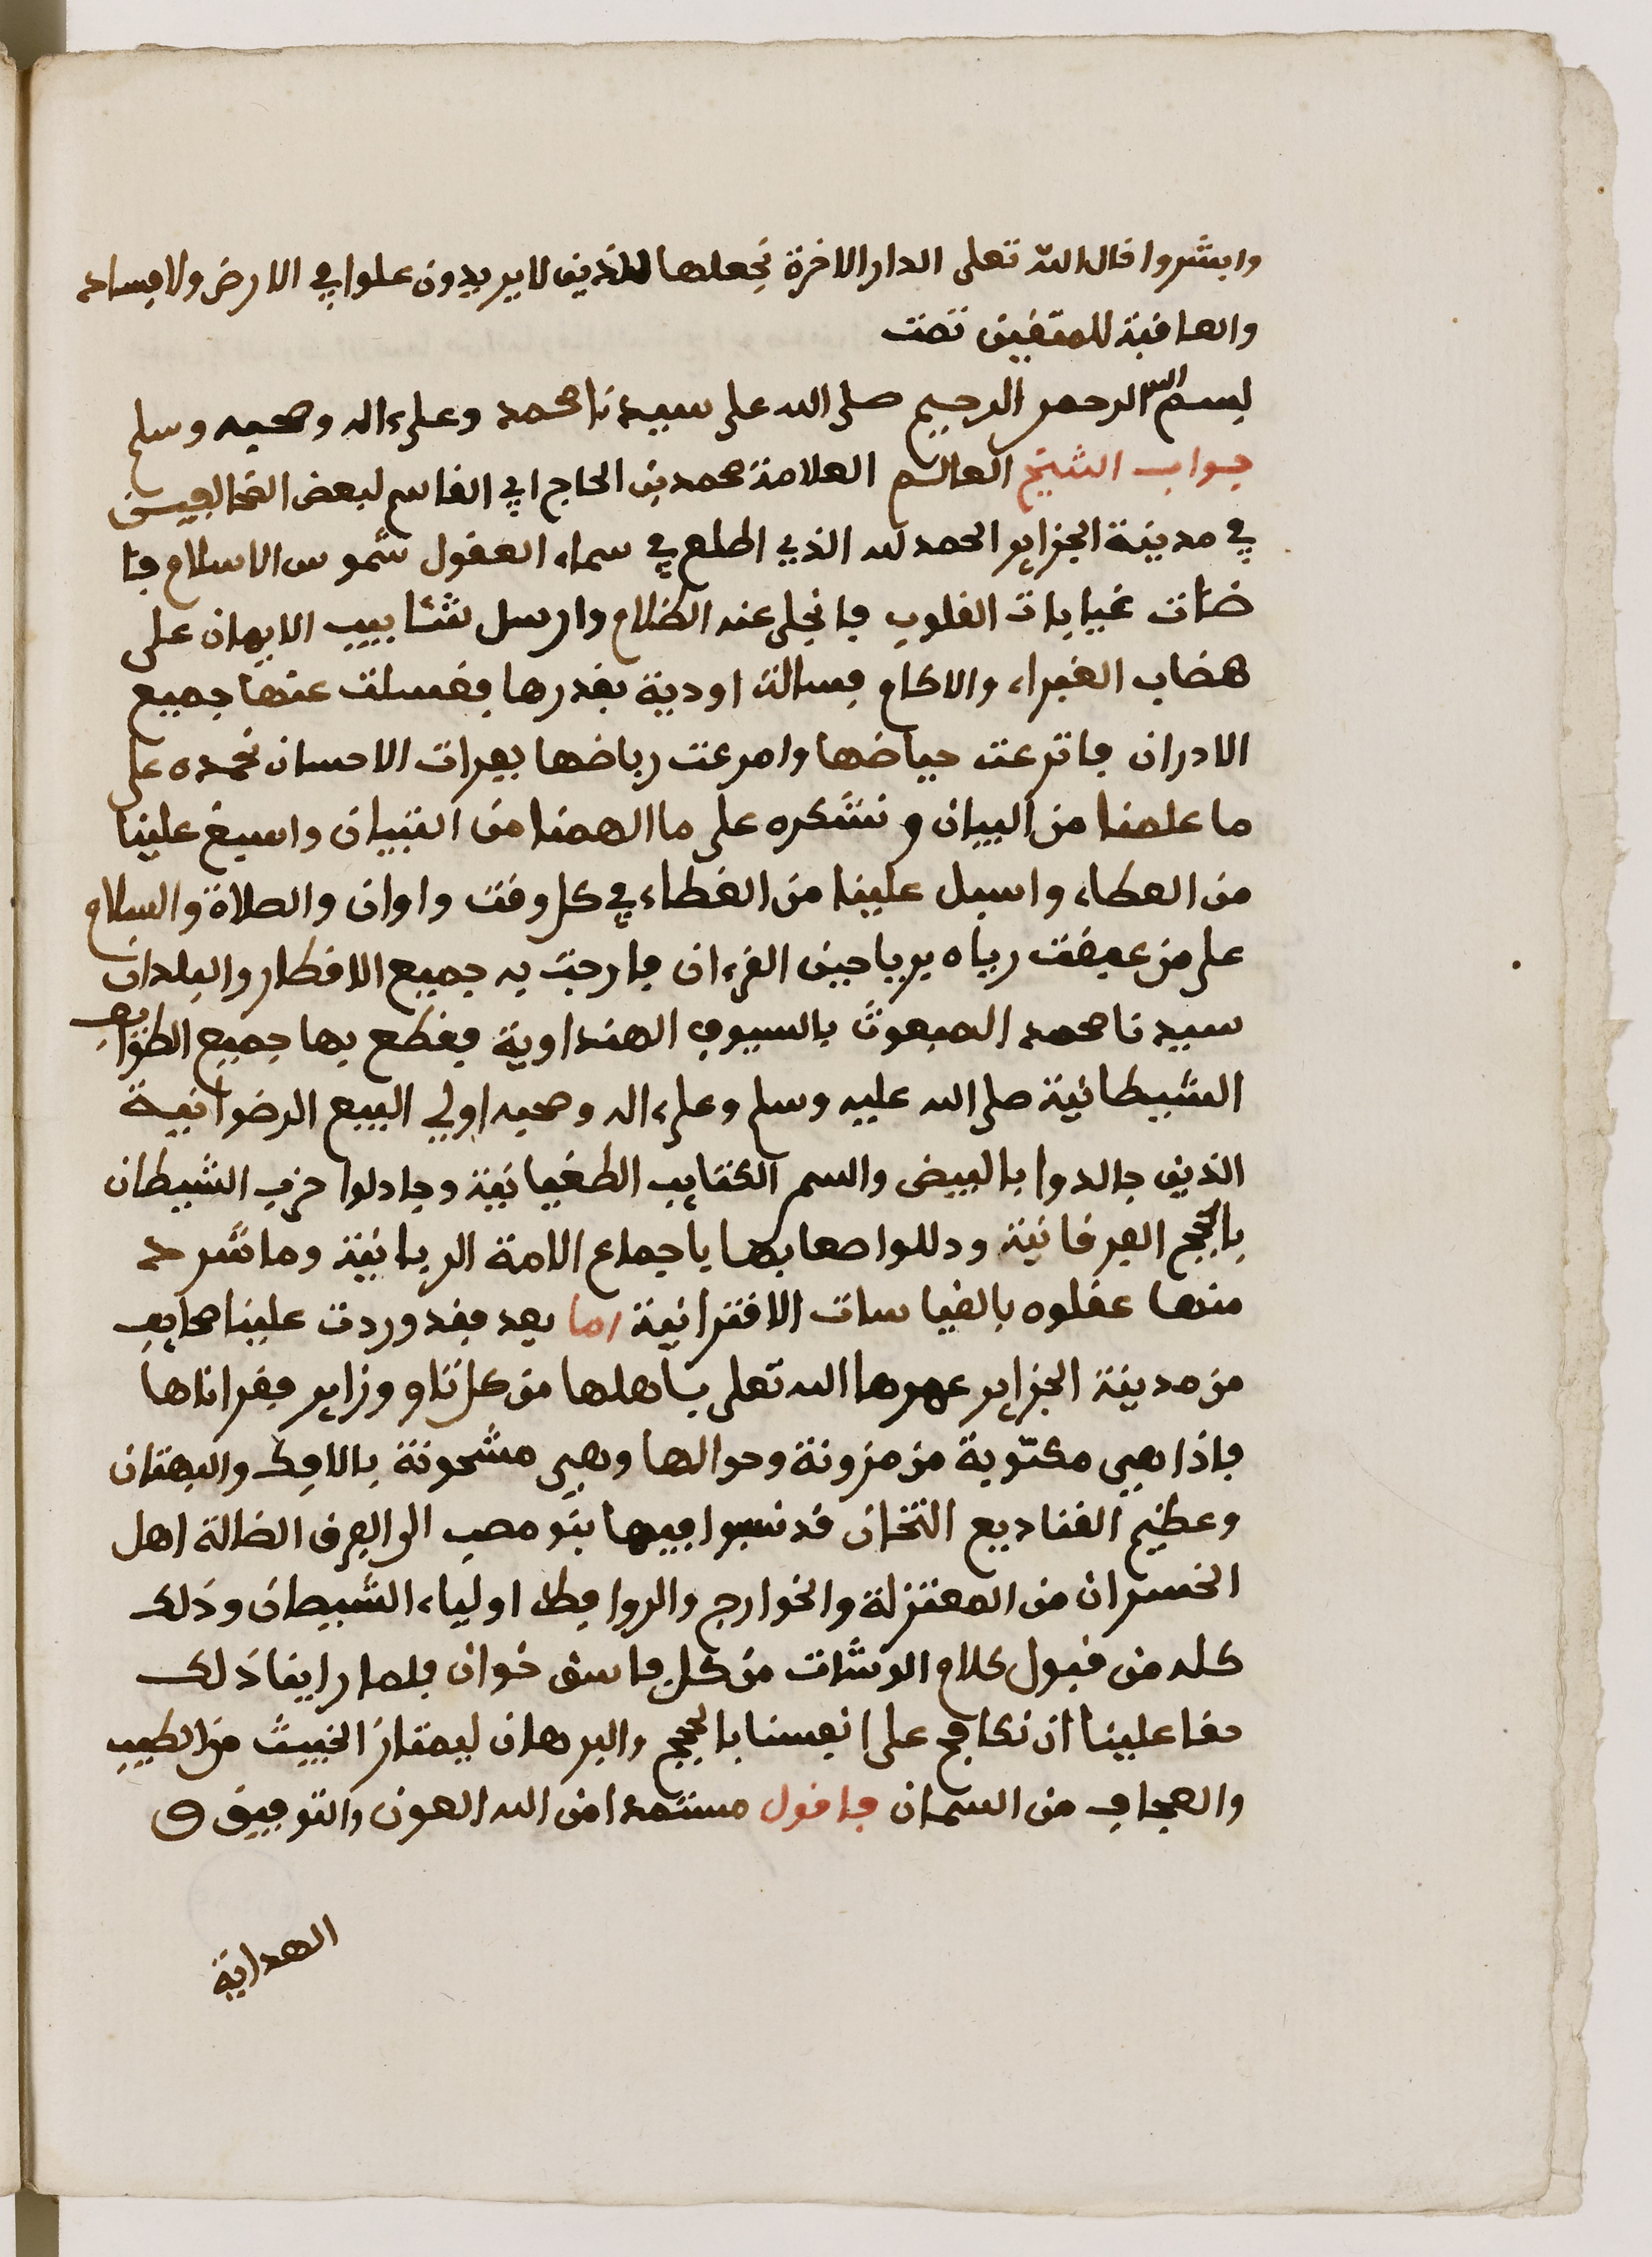 وابشروا قال الله تعلى الدار الاخرة نجعلها للذين لا يريدون علوا في الارض ولا فسادا
والعاقبة للمتقين تمت
بسم الله الرحمن الرحيم صلى الله على سيدنا محمد وعلى ءاله وصحبه وسلم
جواب الشيخ العالم العلامة محمد بن الحاج ابي القاسم لبعض المخالفين
في مدينة الجزاير الحمد لله الذي اطلع في سماء العقول شموس الاسلام فا
ضات غيابات القلوب فانجلى عنه الظلام وارسل شئابيب الايمان على
هضاب الغبراء والاكام فسالت اودية بقدرها فغسلت عنها جميع
الادران فاترعت حياضها وامرعت رياضها بفرات الاحسان نحمده على
ما علمنا من البيان ونشكره على ما الهمنا من التبيان واسبغ علينا
من العطاء واسبل علينا من الغطاء في كل وقت واوان والصلاة والسلام
على من عبقت رياه برياحين القرءان فارجت به جميع الاقطار والبلدان
سيدنا محمد المبعوث بالسيوف الهنداوية فقطع بها جميع الطوايف
الشيطانية صلى الله عليه وسلم وعلى ءاله وصحبه اولي البيع الرضوانية
الذين جالدوا بالبيض والسمر الكتايب الطغيانية وجادلوا حزب الشيطان
بالحجج الفرقانية ودللوا صعابها باجماع الامة الربانية وما شرد
منها عقلوه بالقياسات الاقترانية اما بعد فقد وردت علينا صحايف
من مدينة الجزاير عمرها الله تعلى باهلها من كل ثاو وزاير فقراناها
فاذا هي مكتوبة من مزونة وحوالها وهي مشحونة بالافك والبهتان
وعظيم القناديع النتخان قد نسبوا فيها بنو مصب الى الفرق الضالة اهل
الخسران من المعتزلة والخوارج والروافظ اولياء الشيطان وذلك
كله من قبول كلام الوشات من كل فاسق خوان فلما راينا ذلك
حقا علينا ان نكافح على انفسنا بالحجج والبرهان ليمتاز الخبيث من الطيب
والعجاف من السمان فاقول مستمدا من الله العون والتوفيق و
الهداية